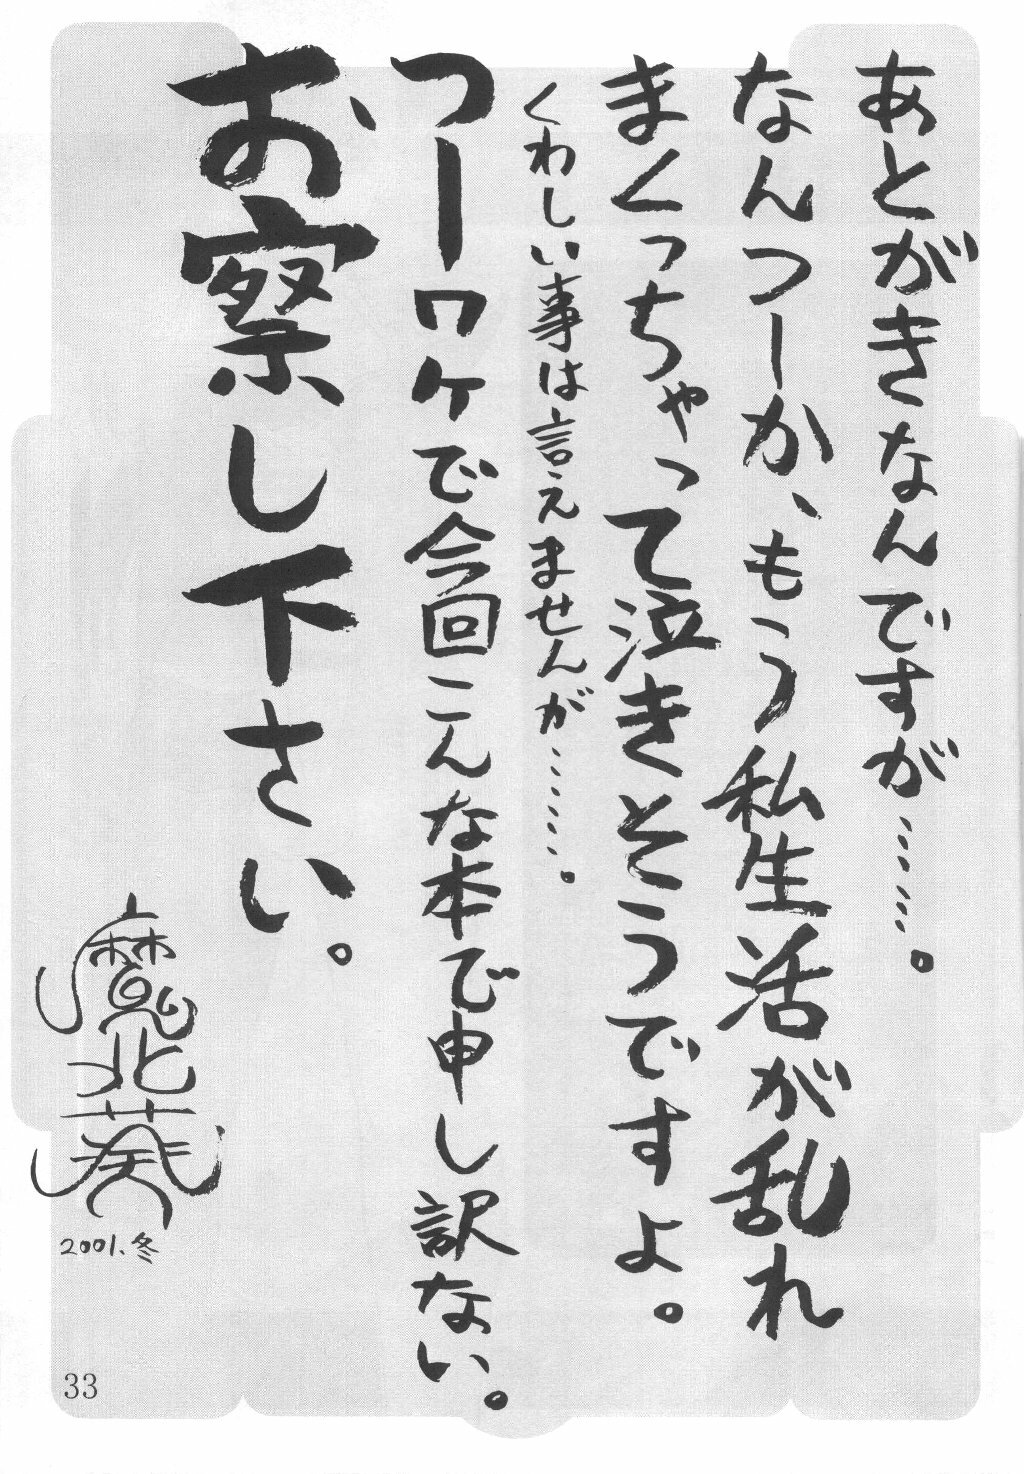 あとがきなんですが………。
なんつーか、もう私生活が乱れ
まくっちゃって泣きそうですよ。
くわしい事は言えませんが………。
つーワケで今回こんな本で申し訳ない。
お察し下さい。
魔北葵
2001.冬
33